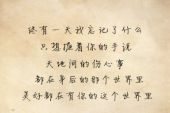 终有一天我忘记了什么
只想握着你的手说
天地间的伤心事
都在身后的那个世界里
美好都在有你的这个世界里